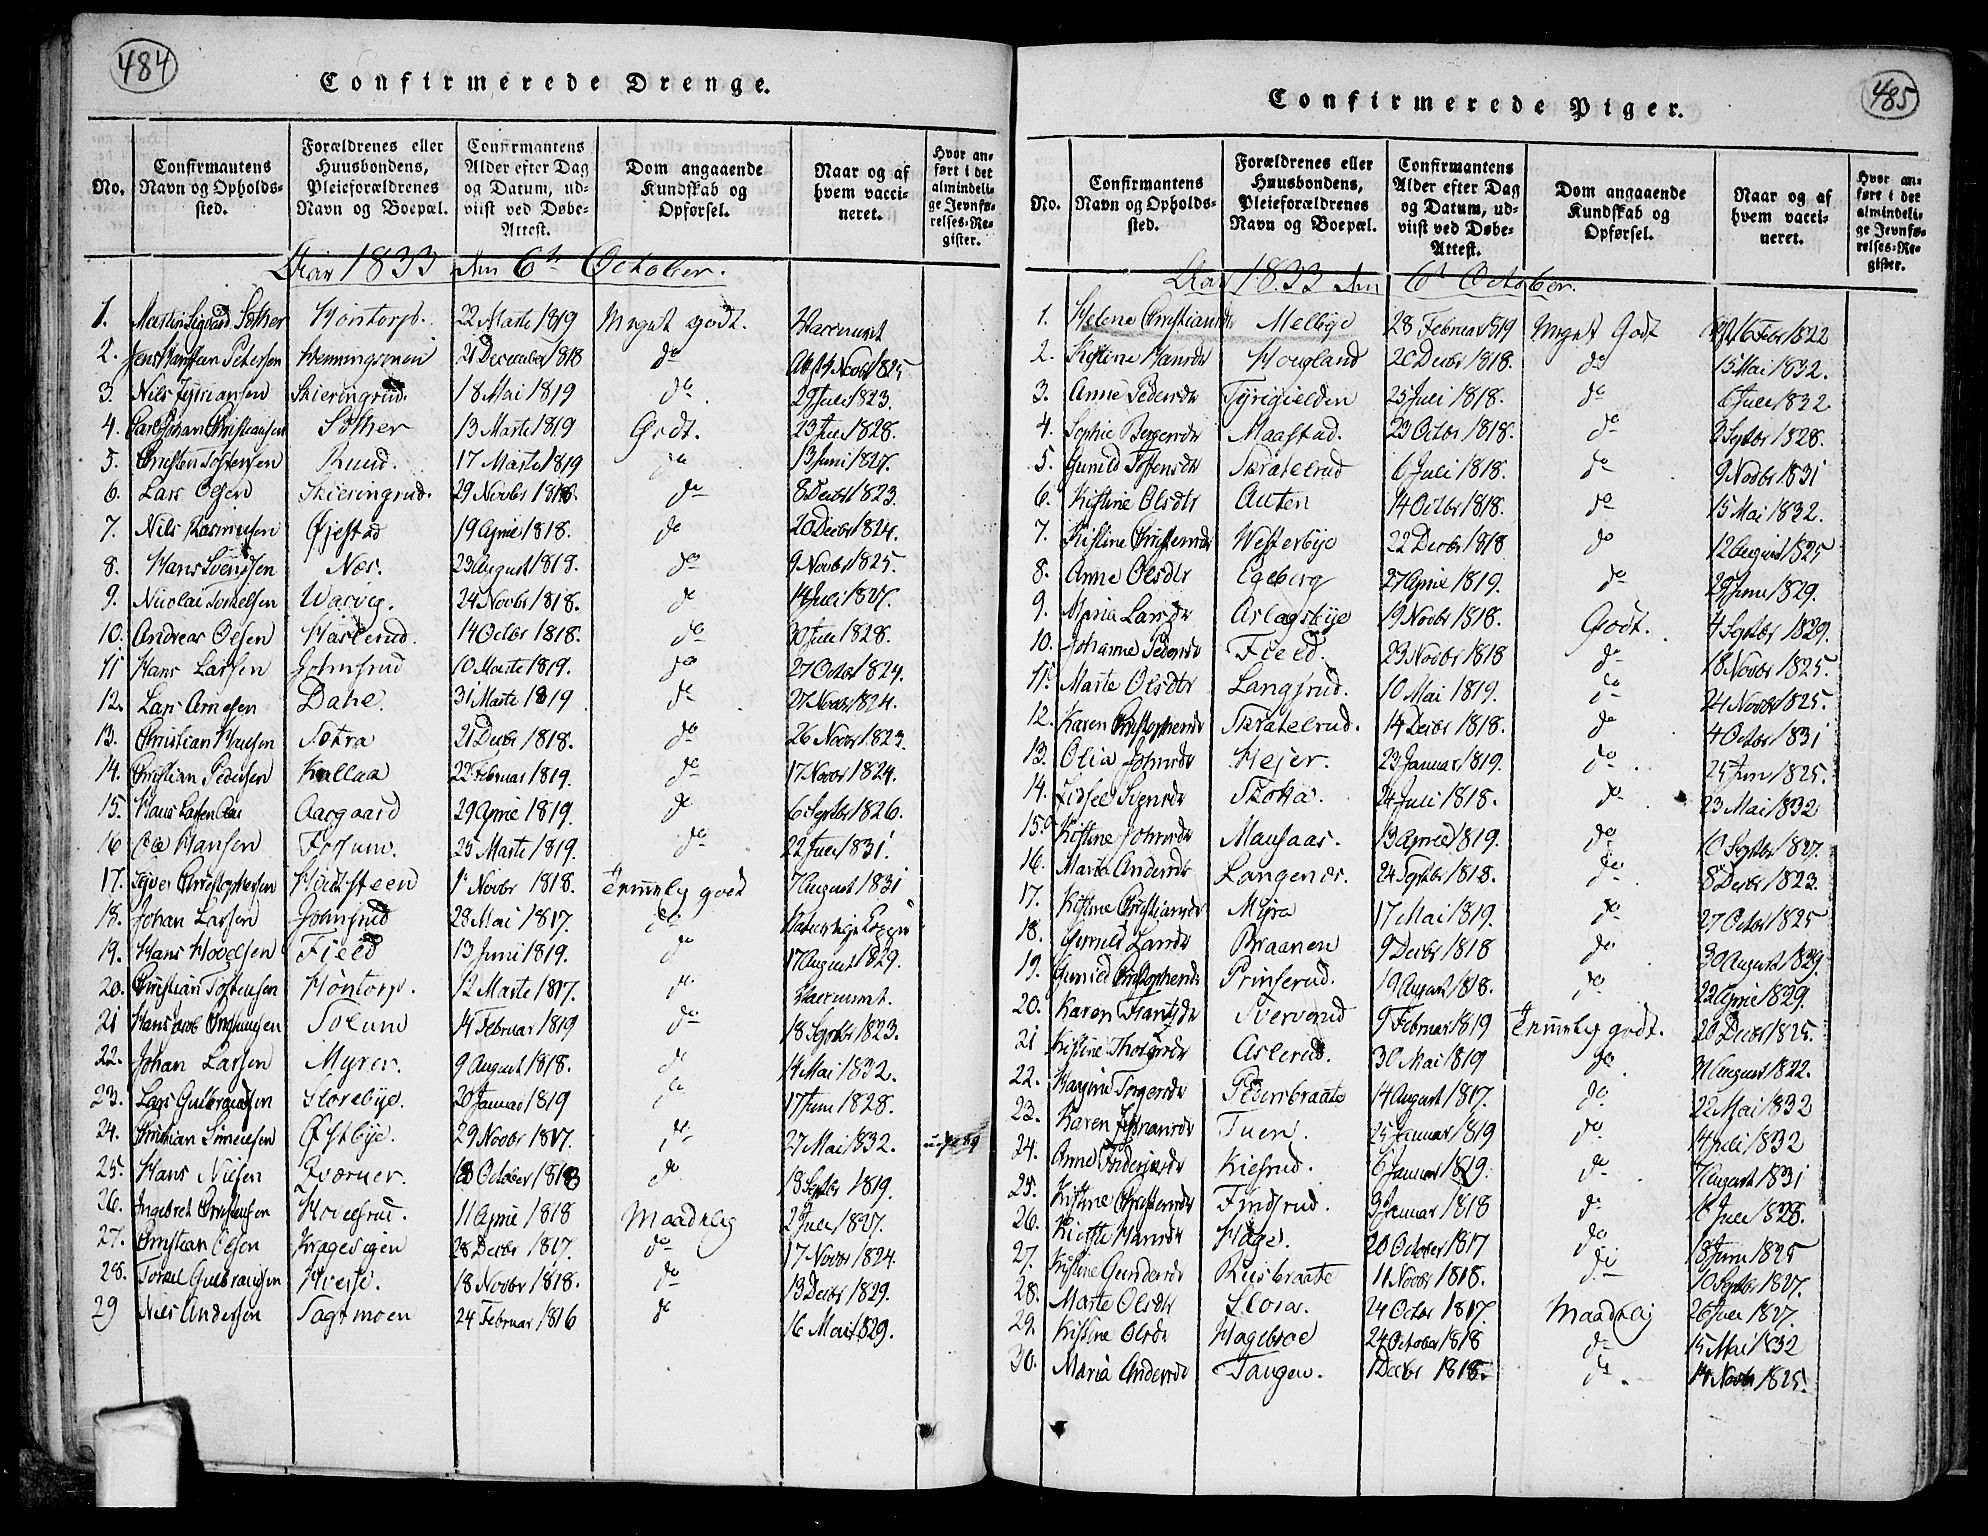 484
Confirmerede Drenge.
No.
Confirmantens Navn og Opholds-sted.
Forældrenes eller Huusbondens, Pleieforældrenes Navn og Boepæl.
Confirmantens Alder efter Dag og Datum, ud-viist ved Døbe-Attest.
Dom angaaende Kundskab og Opførsel.
Naar og af hvem vacci-neret.
Hvor an-ført i det almindeli-ge Jevnfø-relses-Re-gister.
Aar 1833 den 6te October.
1. Martin Sigvard Søther Höntorp. 22 Marts 1819 Meget godt.
2. Jens Petersen 21 December 1818 do Novbr 1825
3. Nils Jöransen Skieringrud. 18 Mai 1819 do 29 Juli 1823.
4. Carl Johan Christiansen Söther 13 Marts 1819 Godt. 23 Juli 1828.
5. Christen Tostensen Ruud. 17 Marts 1819 do 13 Juni 1827.
6. Lars Olsen Skieringrud. 29 Novbr 1818 do 8 Decbr 1823.
7. Nils Rasmusen Øjestad 19 April 1818. do 20 Decbr 1824.
8. Hans Svendsen Næs. 23 August 1818. do 9 Novbr 1825.
9. Nicolai Torkelsen Warvig. 24 Novbr 1818. do 14 Juli 1827.
10. Andreas Olsen 14 Octbr 1818. do 30 Juli 1828.
11 Hans Larsen Johnsrud 10 Marts 1819. do 27 Octbr 1824.
12. Lars Arnesen Dahl. 31 Marts 1819 do 27 Novbr 1824.
13. Christian Hansen Sotra 21 Decbr 1818. do 26 Novbr 1823.
14. Christian Pedersen Kallax 22 Februar 1819. do 17 Novbr 1824.
15. Hans Larsen Aargaard 29 April 1819. do 6 Septbr 1826.
16 Ole Hansen Fossum. 25 Marts 1819. do 22 Juli 1831.
17. Christophersen 1 Novbr 1818. Temmelig godt 7 August 1831
18. Johan Larsen Johnsrud 28 Mai 1817. do Naturlige Kopper
19. Hans Hovelsen Field 13 Juni 1819. do 17 August 1829.
20. Christian Tostensen Höntorp. 12 Marts 1817. do
21 Hans Solum 14 Februar 1819 do 18 Septbr 1823.
22. Johan Larsen Myrer. 9 August 1818. do 14 Mai 1832.
23. Lars Gulbrandsen Storebye. 20 Januar 1819 do 17 Juni 1828.
24. Christian Simensen Østbye. 29 Novbr 1817. do 27 Mai 1832.
25. Hans Nielsen Qværner. 18 October 1818 do 18 Septbr 1819.
26. Ingebret Christensen Hovelsrud. 11 April 1818 Maadelig 2 Juli 1827.
27. Christian Olsen Kragevigen 28 Decbr 1817. do 17 Novbr 1824.
28. Torkel Gulbrandsen 18 Novbr 1818. do 13 Decbr 1829.
29 Niels Andersen Tagtmoen 24 Februar 1816 do 16 Mai 1829.
485
Confirmerede Piger.
No.
Confirmantens Navn og Opholds-sted.
Forældrenes eller Huusbondens, Pleieforældrenes Navn og Boepæl.
Confirmantens Alder efter Dag og Datum, ud-viist ved Døbe-Attest.
Dom angaaende Kundskab og Opførsel.
Naar og af hvem vacci-neret.
Hvor an-ført i det almindeli-ge Jevnfø-relses-Re-gister.
Aar 1833 den 6te October.
1. Helene Christiansdtr Melbye 28 Februar 1819 Meget Godt 16 Febr 1822
2. Kistine Hansdr Hougland 20 Decbr 1818. do 15 Mai 1832.
3. Anne Pedersdr Tyrigielden 25 Juli 1818. do 6 Juli 1832
4. Sophie Bergersdr Maastad. 23 Octbr 1818. do 3 Septbr 1828.
5. Gunild Tostensdr Skratelrud 6 Juli 1818. do 9 Novbr 1831
6. Kistine Olsdtr Auten 14 Octbr 1818. do 15 Mai 1832.
7. Kistine Christensdr Westerbye 22 Decbr 1818 do 12 August 1825
8. Anne Olsdtr Egeberg 27 April 1819. do 29 Juni 1829.
9. Maria Larsdr Aslagsbye 19 Novbr 1818. Godt. 4 Septbr 1829.
10. Johanne Pedersdr Field. 23 Novbr 1818 do 18 Novbr 1825.
11. Marte Olsdtr Langsrud. 10 Mai 1819. do 24 Novbr 1825.
12. Karen Christophersdr Skratelrud. 14 Decbr 1818. do 4 Octbr 1831
13. Olia Johnsdr Hejer. 23 Januar 1819. do 25 Juni 1825.
14. Sidsel Signsdr 24 Juli 1818. do 23 Mai 1832
15. Kistine Johnsdr Mausaas. 13 April 1819. do 10 Septbr 1827.
16. Maria Andersdr Langenæs. 24 Septbr 1818. do 8 Decbr 1823.
17. Kistine Christiansdr Myra 17 Mai 1819. do 27 Octbr 1825
18. Gunild Larsdr Braanen 9 Decbr 1818 do 30 August 1829.
19. Gunild Christophersdr Prinserud. 19 August 1818. do 22 April 1829.
20. Karen Frantzdr Sververud 9 Februar 1819 Temmelig godt. 20 Decbr 1825.
21 Kistine Aslerud. 30 Mai 1819 do 31 August 1822.
22. Torgersdr Pedersbraate 14 August 1817. do 22 Mai 1832
23. Karen Tuen. 25 Januar 1819 do 14 Juli 1832
24. Anne Kiesrud. 6 Januar 1819. do 7 August 1831
25. Kistine Christensdr Findsrud. 9 Januar 1818 do 16 Juli 1828.
26. Hansdr Hage. 20 October 1817 do 18 Juni 1825
27. Kistine Gundersdr Rusbraate 11 Novbr 1818. do 10 Septbr 1827.
28. Marte Olsdtr Slora. 24 Octbr 1817. Maadelig 26 Juli 1827.
29. Kistine Olsdr Hagebroe 24 October 1818 do 15 Mai 1832
30. Maria Andersdr Tangen. 1 Decbr 1818. do 14 Novbr 1825.